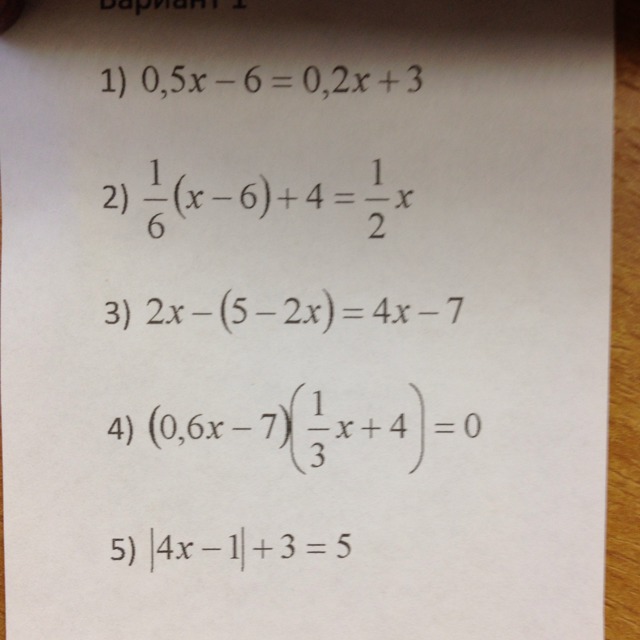 Вариант 1
1) 0,5x − 6 = 0,2x + 3
2) 1/6 (x − 6) + 4 = 1/2 x
3) 2x − (5 − 2x) = 4x − 7
4) (0,6x − 7)(1/3 x + 4) = 0
5) |4x − 1| + 3 = 5